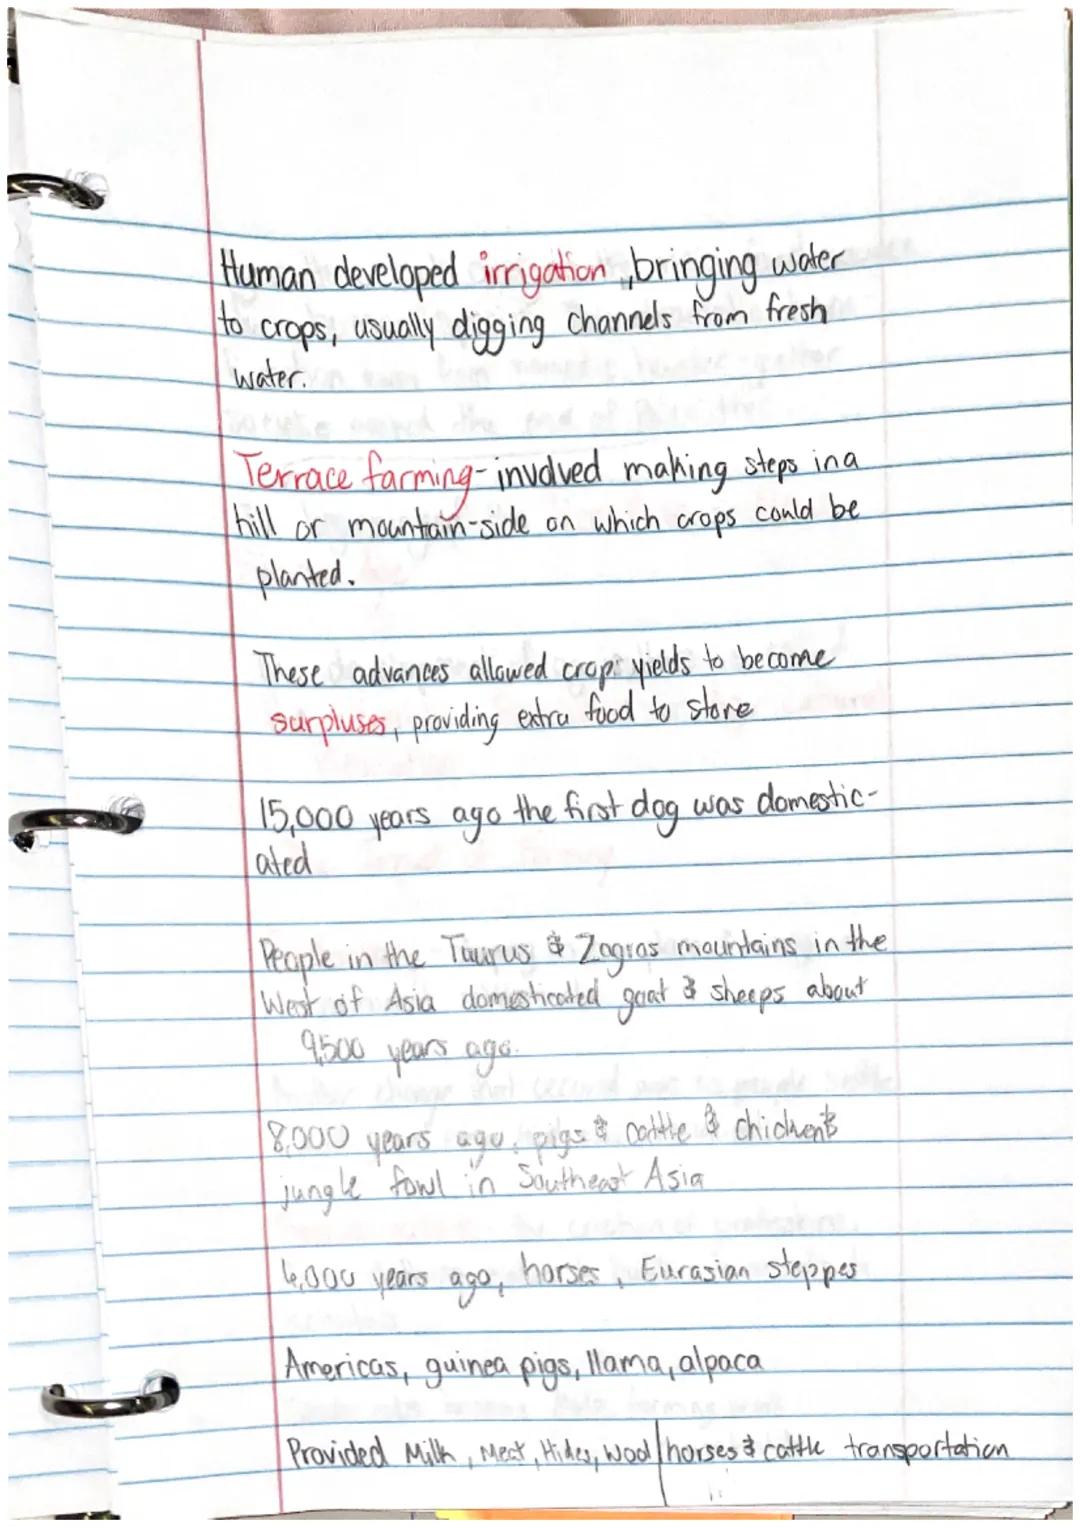 Human developed irrigation, bringing water
to crops, usually digging channels from fresh
water.
Terrace farming - involved making steps in a
hill or mountain-side on which crops could be
planted.
These advances allowed crops yields to become
surpluses, providing extra food to store
15,000 years ago the first dog was domestic-
ated
People in the Taurus & Zagros mountains in the
West of Asia domesticated goat & sheeps about
9,500 years ago.
8,000 years ago, pigs & cattle & chickens
jungle fowl in Southeast Asia
years ago, horses, Eurasian steppes
Americas, guinea pigs, llama, alpaca
Provided Milk, Meat, Hides, Wool | horses & cattle transportation